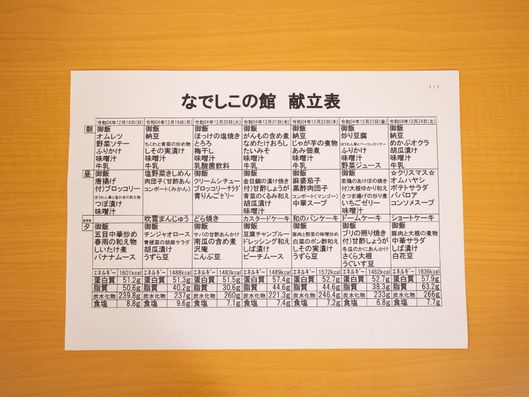 1 / 1
なでしこの館 献立表
令和04年12月18日(日) 令和04年12月19日(月) 令和04年12月20日(火) 令和04年12月21日(水) 令和04年12月22日(木) 令和04年12月23日(金) 令和04年12月24日(土)
朝 御飯 御飯 御飯 御飯 御飯 御飯 御飯
オムレツ 納豆 ほっけの塩焼き がんもの含め煮 納豆 炒り豆腐 納豆
野菜ソテー ちくわと青菜の炒め物 とろろ なめたけおろし じゃが芋の煮物 めかぶオクラ
ふりかけ しその実漬け 梅干し たいみそ あみ佃煮 ふりかけ 胡瓜漬け
味噌汁 味噌汁 味噌汁 味噌汁 味噌汁 味噌汁 味噌汁
牛乳 牛乳 乳酸菌飲料 牛乳 牛乳 野菜ジュース 牛乳
昼 御飯 塩野菜きしめん 御飯 御飯 御飯 御飯 ☆クリスマス☆
唐揚げ 肉団子(甘酢あん) クリームシチュー 麻婆茄子 オムハヤシ
付)ブロッコリー コンポート(みかん) ブロッコリーサラダ 付)甘酢しょうが 黒酢肉団子 付)大根ゆかり和え ポテトサラダ
青りんごゼリー 青菜のくるみ和え コンポート(もも) ババロア
つぼ漬け 胡瓜漬け 中華スープ いちごゼリー コンソメスープ
味噌汁 味噌汁 味噌汁
吹雪まんじゅう どら焼き カスタードケーキ 和のパンケーキ ドームケーキ ショートケーキ
夕 御飯 御飯 御飯 御飯 御飯 御飯 御飯
五目中華炒め チンジャオロース 豆腐チャンプルー 豚肉と野菜の味噌炒め ブリの照り焼き 豚肉と大根の煮物
春雨の和え物 青梗菜の胡麻サラダ 南瓜の含め煮 ドレッシング和え 白菜のポン酢和え 付)甘酢しょうが 中華サラダ
しいたけ煮 胡瓜漬け 沢庵 しば漬け しその実漬け しば漬け
バナナムース うずら豆 こんぶ豆 ピーチムース うずら豆 さくら大根 白花豆
うぐいす豆
エネルギー 1601kcal エネルギー 1488kcal エネルギー 1483kcal エネルギー 1489kcal エネルギー 1572kcal エネルギー 1462kcal エネルギー 1836kcal
蛋白質 51.2g 蛋白質 51.3g 蛋白質 51.5g 蛋白質 52.7g 蛋白質 52.7g 蛋白質 57.9g
脂質 50.6g 脂質 40.2g 脂質 30.6g 脂質 44.6g 脂質 52.2g 脂質 38.3g 脂質 63.2g
炭水化物 239.8g 炭水化物 237g 炭水化物 260g 炭水化物 221.3g 炭水化物 246.4g 炭水化物 233g 炭水化物 266g
食塩 8.8g 食塩 9.6g 食塩 7.1g 食塩 7.4g 食塩 7.2g 食塩 6.8g 食塩 7.7g